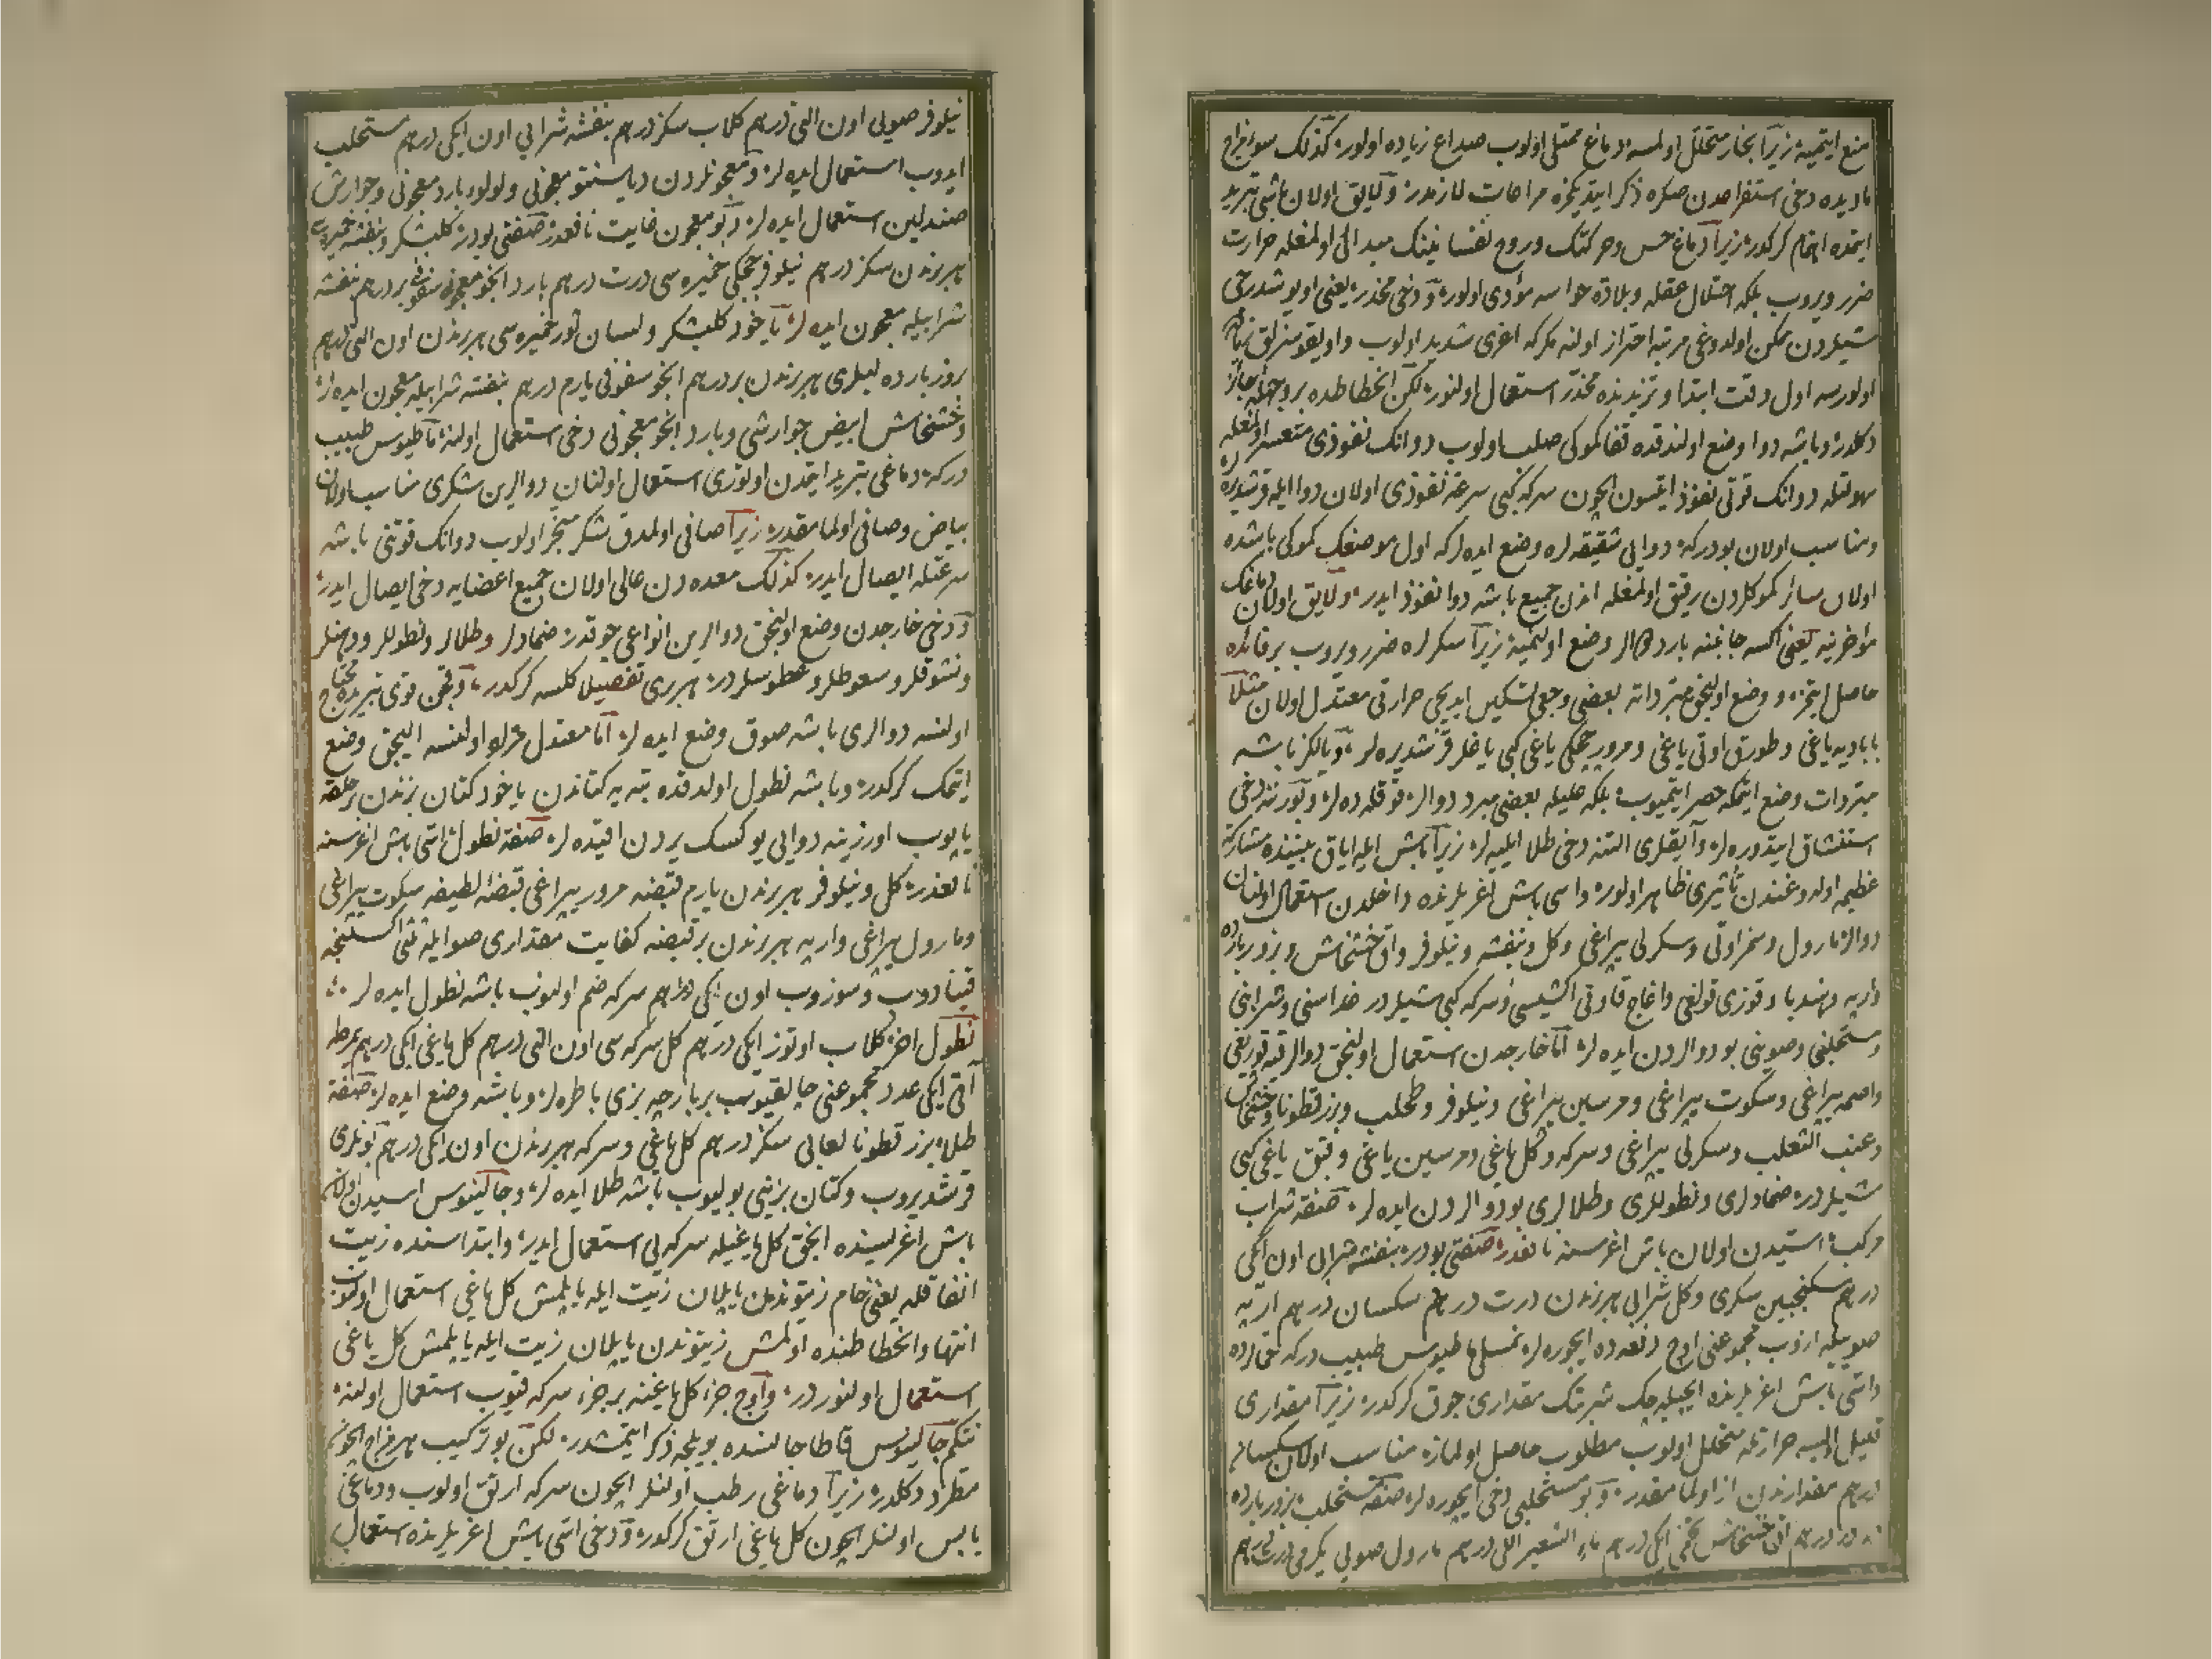 منع ایتمیه زیرا بخار متحلل اولمسه دماغ ممتلی اولوب صداع زیاده اولور کذلک سوء مزاج
مادیده دخی استفراغدن صکره ذکر ایتدیکمزه مراعات لازمدر ولایق اولان باشی تبرید
ایتمده اهتمام کرکدر زیرا دماغ حس وحرکتک وروح نفسانینک مبدالی اولمغله حرارت
ضرر ویروب بلکه اختلال عقله وبلاده حواسه مؤدی اولور ودخی مخدر یعنی اویوشدرجی
شیلردن ممکن اولدوغی مرتبه احتراز اولنه مکرکه اغری شدید اولوب واویقوسزلق
اولورسه اول وقت ابتدا وتزیدنده مخدر استعمال اولنور لکن انحطاطده بروجهله جائز
دکلدر وباشه دوا وضع اولندقده قفا کموکی صلب اولوب دوانک نفوذی متعسر اولمغله
سهولتله دوانک قوتی نفوذ ایتسون ایچون سرکه کبی سرعتله نفوذی اولان دوا ایله قرشدیره لر
ومناسب اولان بودرکه دوایی شقیقه لره وضع ایده لر که اول موضعک کموکی باشده
اولان سائر کموکلردن رقیق اولمغله اندن جمیع باشه دوا نفوذ ایدر ولایق اولان دماغک
مؤخرینه یعنی اکسه جانبنه بارد دوالر وضع اولنمیه زیرا سکرلره ضرر ویروب بر فائده
حاصل ایتمز ووضع اولنجق مبرداته بعضی وجعی تسکین ایدیجی حرارتی معتدل اولان مثلا
بابادیه یاغی وطورق اوتی یاغی ومرور چیچکی یاغی کبی یاغلر قرشدیره لر ویالکز باشه
مبردات وضع ایتمکه حصر ایتمیوب بلکه حلیله بعضی مبرد دوالر قوقلده لر وبورننه دخی
استنشاق ایتدوره لر وآیقلری التنه دخی طلا ایلیه لر زیرا باش ایله ایاق بیننده مشارکة
عظیمه اولدوغندن تأثیری ظاهر اولور واسی باش اغریلرنده داخلدن استعمال اولنان
دوالر مارول وسمزاوتی وسکرلی یپراغی وکل وبنفشه ونیلوفر واق خشخاش وبزور بارده
واربه وهندبا وقوزی قولغی واغاج قاونی اکشیسی وسرکه کبی شیلردر غداسنی وشرابنی
ومستحلبنی وصوینی بو دوالردن ایده لر اما خارجدن استعمال اولنجق دوالر قیه قوریغی
واصمه یپراغی وسکوت یپراغی ومرسین یپراغی ونیلوفر وطحلب وبزرقطونا وخشخاش
وعنب الثعلب وسکرلی یپراغی وسرکه وکل یاغی ومرسین یاغی وقبق یاغی کبی
شیلردر ضمادلری ونطوللری وطلالری بو دوالردن ایده لر صفة شراب
مرکب استیدن اولان باش اغرسنه نافعدر صنعتی بودر بنفشه شرابی اون ایکی
درهم سکنجبین سکری وکل شرابی هربرندن درت درهم سکسان درهم اربه
صویله ازوب مجموعنی اوچ دفعه ده ایچوره لر تمسلی ماطیوس طبیب درکه حاره
واسی باش اغریلرنده ایچیله جک شربتک مقداری چوق کرکدر زیرا مقداری
قلیل ایسه حرارتله متحلل اولوب مطلوب حاصل اولماز مناسب اولان سکسان
درهم مقدارندن از اولمامقدر وبو مستحلبی دخی ایچوره لر صفة مستحلب بزور بارده
درهم اق خشخاش تخمی ایکی درهم ماء الشعیر اللی درهم مارول صویی یکرمی درت درهم
نیلوفر صویی اون التی درهم کلاب سکز درهم بنفشه شرابی اون ایکی درهم مستحلب
ایدوب استعمال ایده لر ومعجونلردن دیاسنتو معجونی ولولوء بارد معجونی وجوارش
صندلین استعمال ایده لر وبو معجون غایت نافعدر صنعتی بودر کلبشکر وبنفشه خمیره سی
هربرندن سکز درهم نیلوفر چیچکی خمیره سی درت درهم بارد انجو معجونی سفوفی بر درهم بنفشه
شرابیله معجون ایده لر یاخود کلبشکر ولسان ثور خمیره سی هربرندن اون التی درهم
بزور بارده لبلری هربرندن بر درهم انجو سفوفی یارم درهم بنفشه شرابیله معجون ایده لر
وخشخاش ابیض جوارشی وبارد انجو معجونی دخی استعمال اولنه ماطیوس طبیب
درکه دماغی تبرید ایتمدن اوتوری استعمال اولنان دوالرین شکری مناسب اولان
بیاض وصافی اولمامقدر زیرا صافی اولمدق شکر متبخر اولوب دوانک قوتنی باشه
سرعتله ایصال ایدر کذلک معده دن عالی اولان جمیع اعضایه دخی ایصال ایدر
ودخی خارجدن وضع اولنجق دوالرین انواعی چوقدر ضمادلر وطلالر ونطوللر ودهنلر
ونشوقلر وسعوطلر وعطوسلردر هربری تفصیلا کلسه کرکدر وقچن قوی تبریده محتاج
اولنسه دوالری باشه صوق وضع ایده لر اما معتدل مراد اولنسه الیجق وضع
ایتمک کرکدر وباشه نطول اولدقده تپه یه کتاندن یاخود کتان بزندن بر حلقه
یاپوب اورزینه دوایی یوکسک یردن اقیده لر صفة نطول اسی باش اغرسنه
نافعدر کل ونیلوفر هربرندن یارم قبضه مرور یپراغی قبضۀ لطیفه سکوت یپراغی
ومارول یپراغی واربه هربرندن بر قبضه کفایت مقداری صو ایله ثلثی اکسلینجه
قینادوب وسوزوب اون ایکی درهم سرکه ضم اولنوب باشه نطول ایده لر
نطول اخر کلاب اوتوز ایکی درهم کل سرکه سی اون التی درهم کل یاغی ایکی درهم یمرطه
آقی ایکی عدد مجموعنی چالقیوب بر پارچه بزی باطره لر وباشه وضع ایده لر صفة
طلاء بزرقطونا لعابی سکز درهم کل یاغی وسرکه هربرندن اون ایکی درهم بونلری
قرشدیروب وکتان بزینی بولیوب باشه طلا ایده لر وجالینوس اسیدن اولان
باش اغرلیسنده انجق کل یاغیله سرکه یی استعمال ایدر وابتداسنده زیت
انفاقله یعنی خام زیتوندن یاپلان زیت ایله یاپلمش کل یاغی استعمال اولنوب
انتها وانحطاطنده اولمش زیتوندن یاپلان زیت ایله یاپلمش کل یاغی
استعمال اولنور در واوچ جزء کل یاغنه بر جزء سرکه قیوب استعمال اولنه
نتکم جالینوس قاطاجانسنده بویلجه ذکر ایتمشدر لکن بو ترکیب هر مزاج ایچون
مطرد دکلدر زیرا دماغی رطب اولنلر ایچون سرکه ارتق اولوب ودماغی
یابس اولنلر ایچون کل یاغی ارتق کرکدر ودخی اسی باش اغریلرنده استعمال